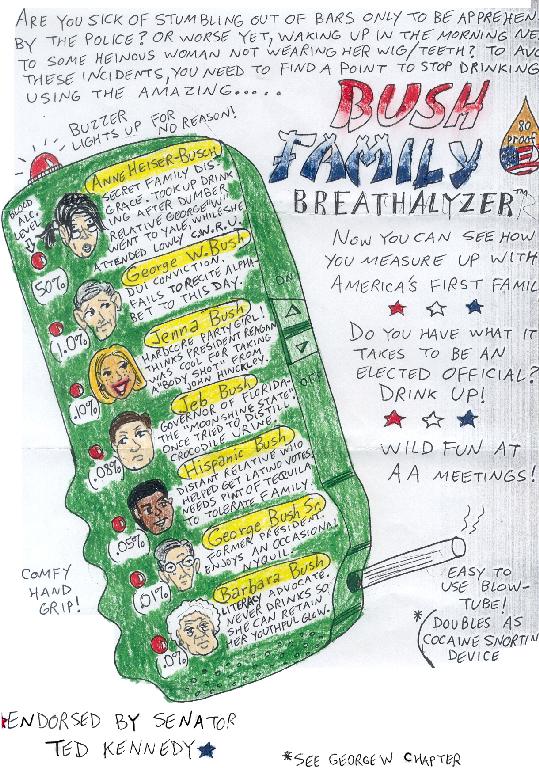 ARE YOU SICK OF STUMBLING OUT OF BARS ONLY TO BE APPREHEN
BY THE POLICE? OR WORSE YET, WAKING UP IN THE MORNING NE
TO SOME HEINOUS WOMAN NOT WEARING HER WIG/TEETH? TO AVO
THESE INCIDENTS, YOU NEED TO FIND A POINT TO STOP DRINKING
USING THE AMAZING.....
BUSH
FAMILY
BREATHALYZER™
80
PROOF
BUZZER
LIGHTS UP FOR
NO REASON!
BLOOD
ALC.
LEVEL
ANNE HEISER-BUSCH
SECRET FAMILY DIS-
GRACE. TOOK UP DRINK
ING AFTER DUMBER
RELATIVE GEORGE W.
WENT TO YALE, WHILE SHE
ATTENDED LOWLY C.W.R.U.
50%
George W. Bush
DUI CONVICTION.
FAILS TO RECITE ALPHA-
BET TO THIS DAY.
1.0%
Jenna Bush
HARDCORE PARTY GIRL!
THINKS PRESIDENT REAGAN
WAS COOL FOR TAKING
A "BODY SHOT" FROM
JOHN HINCKLEY.
.10%
Jeb Bush
GOVERNOR OF FLORIDA-
THE "MOONSHINE STATE".
ONCE TRIED TO DISTILL
CROCODILE URINE.
.08%
Hispanic Bush
DISTANT RELATIVE WHO
HELPED GET LATINO VOTES.
NEEDS PINT OF TEQUILA
TO TOLERATE FAMILY.
.05%
George Bush Sr.
FORMER PRESIDENT.
ENJOYS AN OCCASIONAL
NYQUIL.
.01%
Barbara Bush
LITERACY ADVOCATE.
NEVER DRINKS SO
SHE CAN RETAIN
HER YOUTHFUL GLOW.
.0%
ON
OFF
NOW YOU CAN SEE HOW
YOU MEASURE UP WITH
AMERICA'S FIRST FAMIL
DO YOU HAVE WHAT IT
TAKES TO BE AN
ELECTED OFFICIAL?
DRINK UP!
WILD FUN AT
AA MEETINGS!
COMFY
HAND
GRIP!
EASY TO
USE BLOW-
TUBE!
*(DOUBLES AS
COCAINE SNORTIN
DEVICE
ENDORSED BY SENATOR
TED KENNEDY
*SEE GEORGE W CHAPTER